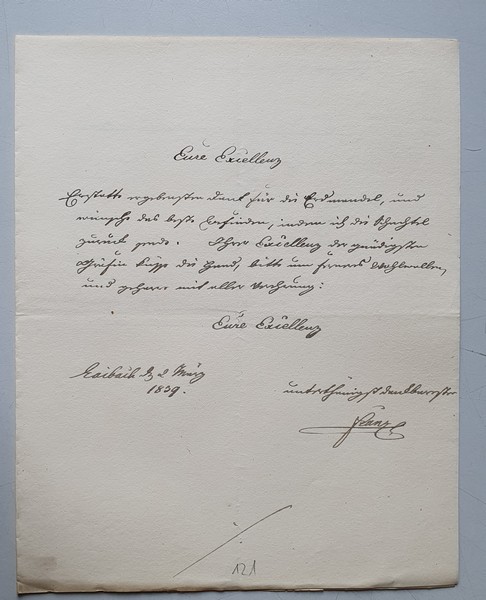 Eure Excellenz
Erstatte ergebensten Dank für die Erdmandel, und
wünsche das beste Befinden, indem ich die Schachtel
zurück sende. Ihrer Excellenz der gnädigsten
Gräfin küsse die Hand, bitte um ferneres Wohlwollen,
und geharre mit aller Verehrung:
Eure Excellenz
Laibach d 2 März
1839.
unterthänigst dankbarster
121